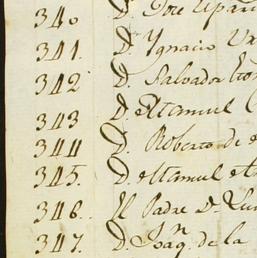 340 D. José
341. D. Ygnacio
342 D. Salvador
343 D. Manuel
344 D. Roberto de
345. D. Manuel
346. El Padre Dn.
347. D. Joaqn. de la